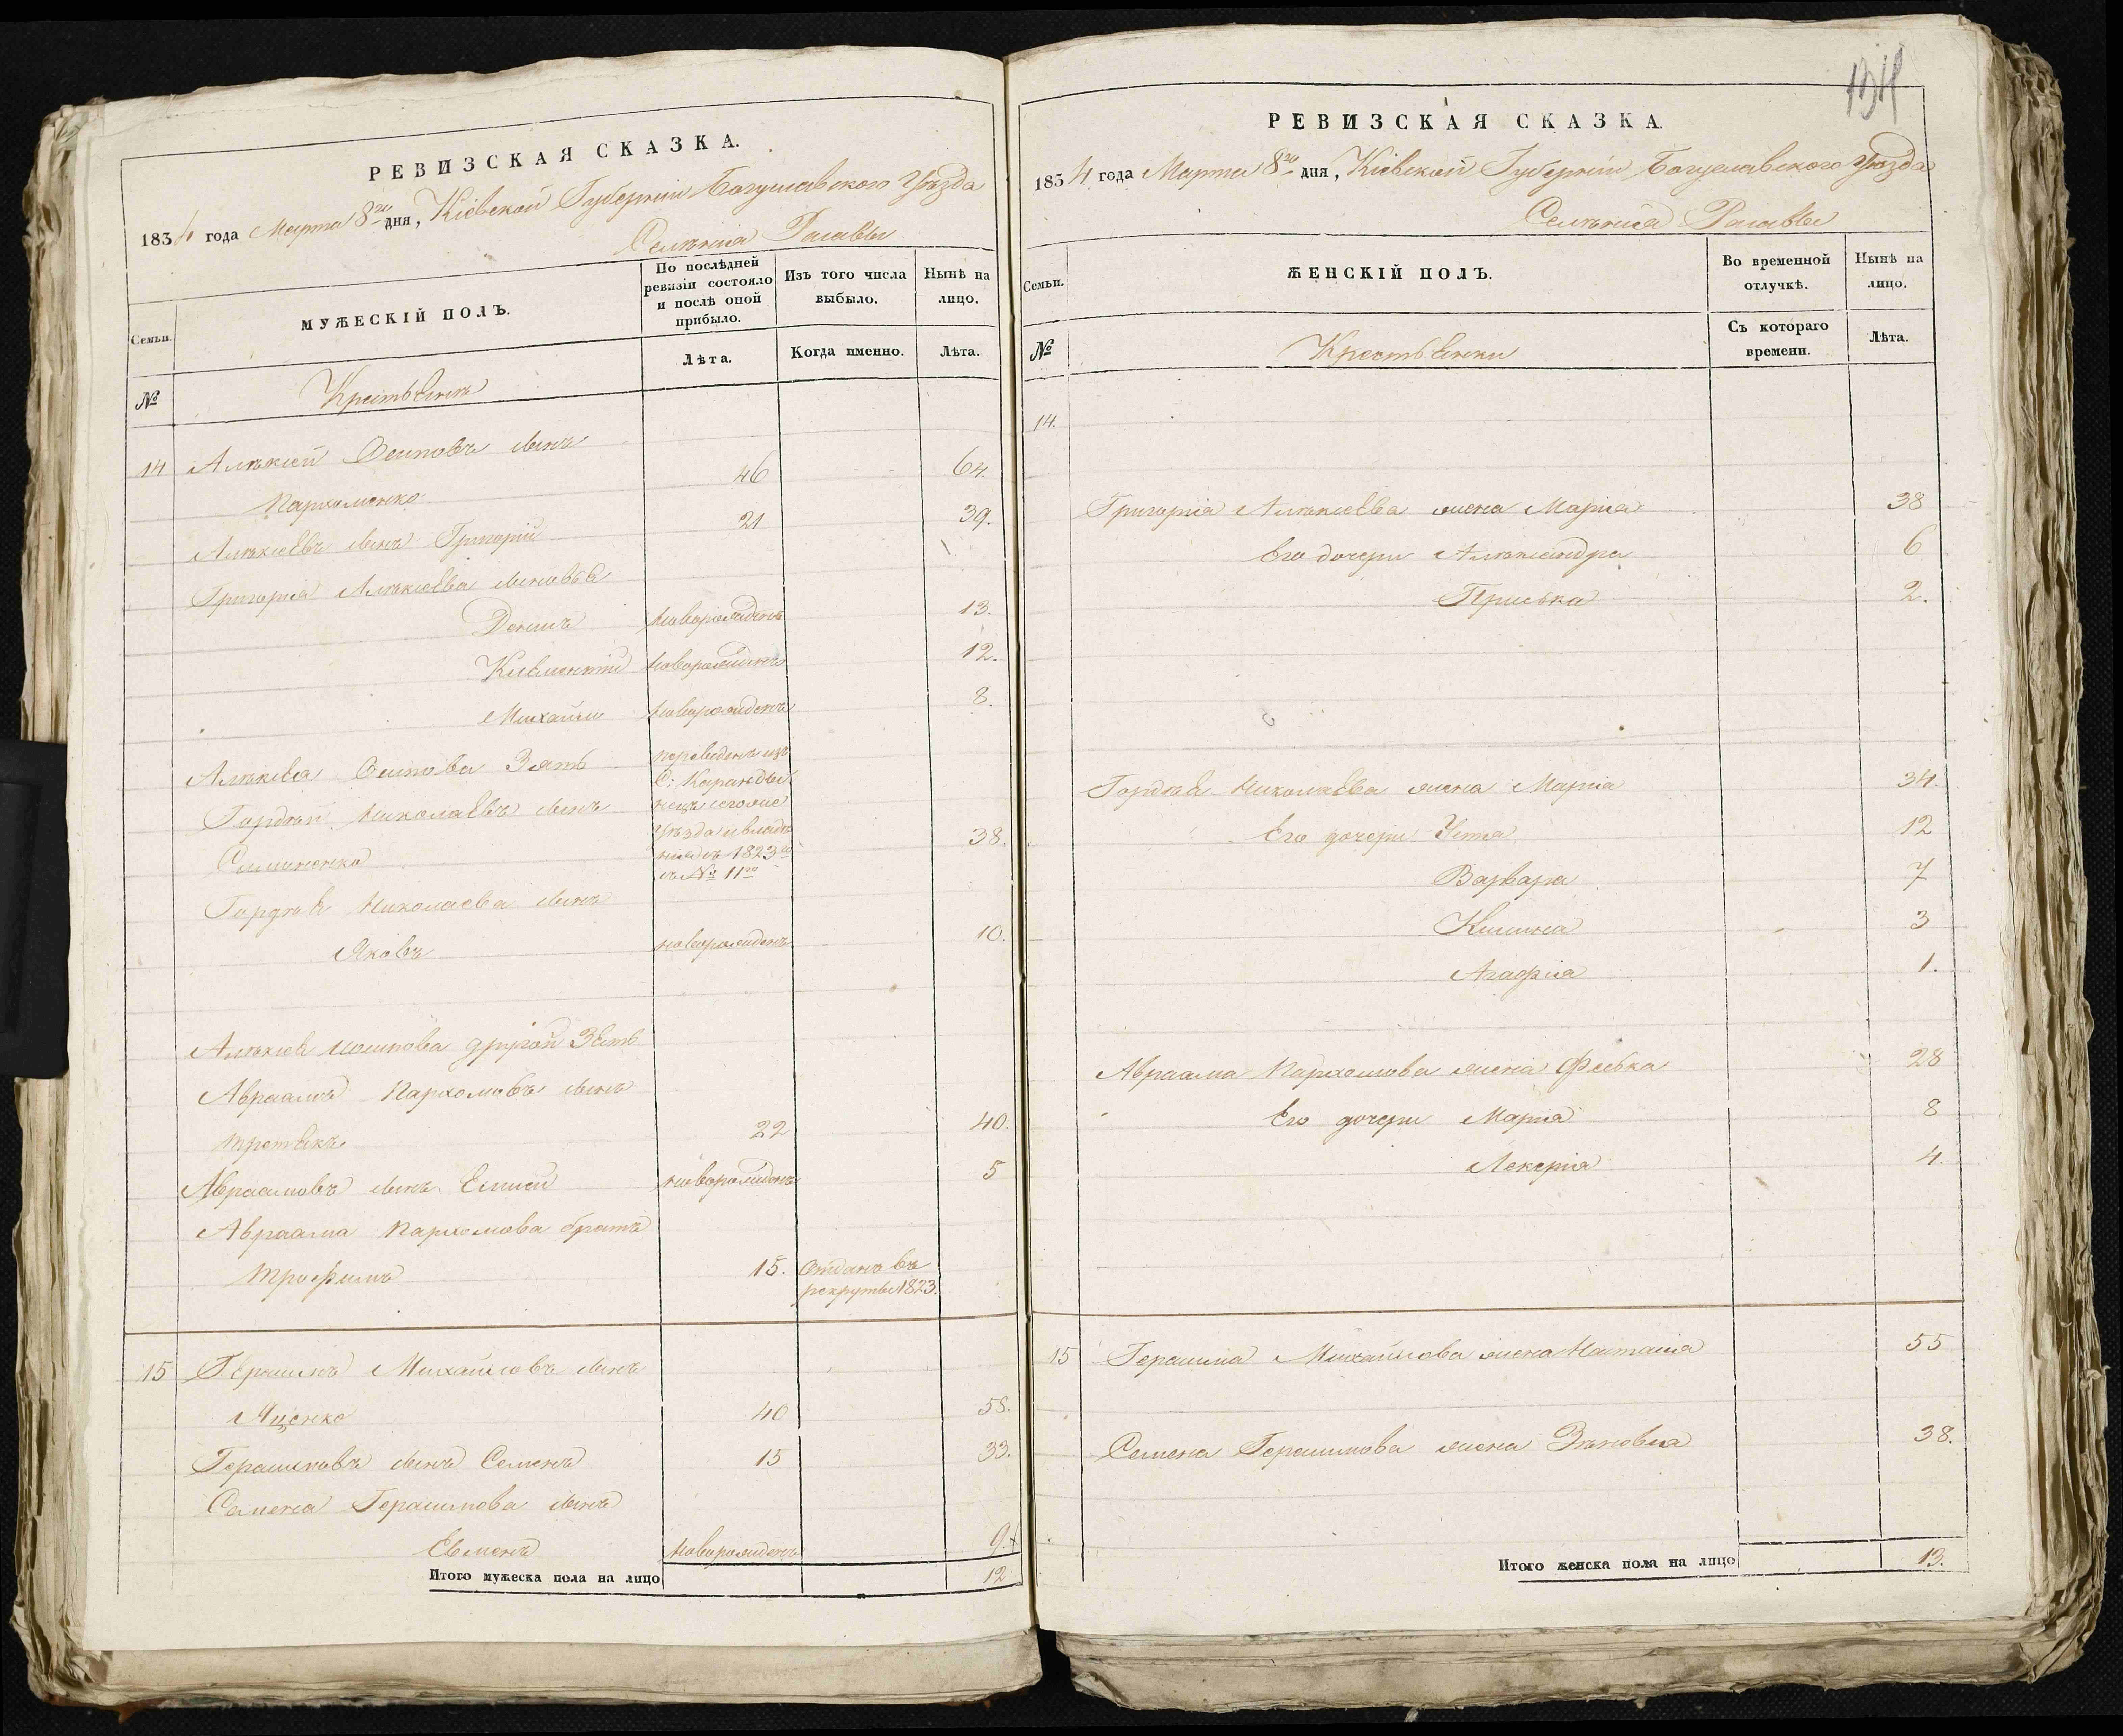 РЕВИЗСКАЯ СКАЗКА.
1834 года Марта 8го дня, Кіевской Губерніи Богуславского Уѣзда
Селѣнія Расавы
Семьи.
МУЖЕСКІЙ ПОЛЪ.
По послѣдней ревизіи состояло и послѣ оной прибыло.
Изъ того числа выбыло.
Нынѣ на лицо.
№
Крестьянъ
Лѣта.
Когда именно.
Лѣта.
14 Алѣксѣй Осиповъ сынъ
Пархоменко 46 64.
Алѣксѣевъ сынъ Григорій 21 39.
Григорія Алѣксѣева сыновья
Денисъ новорожденъ 13.
Климентій новорожденъ 12.
Михайло новорожденъ 8.
Алѣксѣя Осипова Зять
Гордѣй Николаевъ сынъ
Симоненко
переведенъ изъ
С:
уѣзда и владѣ
нія въ 1823го
съ № 11го
38.
Гордѣя Николаева сынъ
Яковъ новорожденъ 10.
Алѣксѣя Иосипова другой Зять
Авраамъ Пархомовъ сынъ
Третьякъ 22 40.
Авраамовъ сынъ Елисей новорожденъ 5
Авраама Пархомова братъ
Трофимъ 15. отданъ въ
рекруты 1823.
15 Герасимъ Михайловъ сынъ
Яценко 40 58.
Герасимовъ сынъ Семенъ 15 33.
Семена Герасимова сынъ
Евменъ новорожденъ 9.
Итого мужеска пола на лицо 12
РЕВИЗСКАЯ СКАЗКА.
1834 года Марта 8го дня, Кіевской Губерніи Богуславского Уѣзда
Селѣнія Расавы
Семьи.
ЖЕНСКІЙ ПОЛЪ.
Во временной отлучкѣ.
Нынѣ на лицо.
№
Крестьянки
Съ котораго времени.
Лѣта.
14.
Григорія Алѣксѣева жена Марія 38
Его дочери Алѣксандра 6
Приська 2.
Гордѣя Николаева жена Марія 34.
Его дочери Устя 12
Варвара 7
Килина 3
Агафія 1.
Авраама Пархомова жена Феська 28
Его дочери Марія 8
Лекерія 4.
15 Герасима Михайлова жена Наталія 55
Семена Герасимова жена Зѣновія 38.
Итого женска пола на лицо 13.